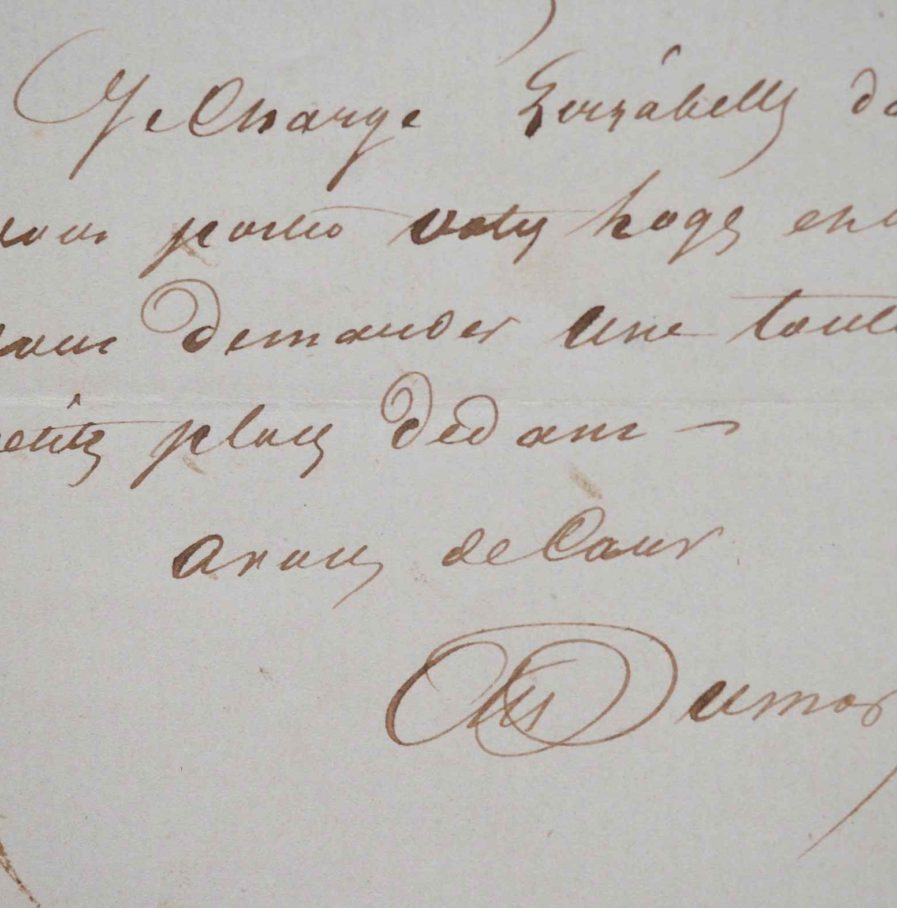 Je Charge Gorzabelle de
vous porter votre loge et
vous demander une toute
petite place dedans —
a vous de Cœur
Alx Dumas